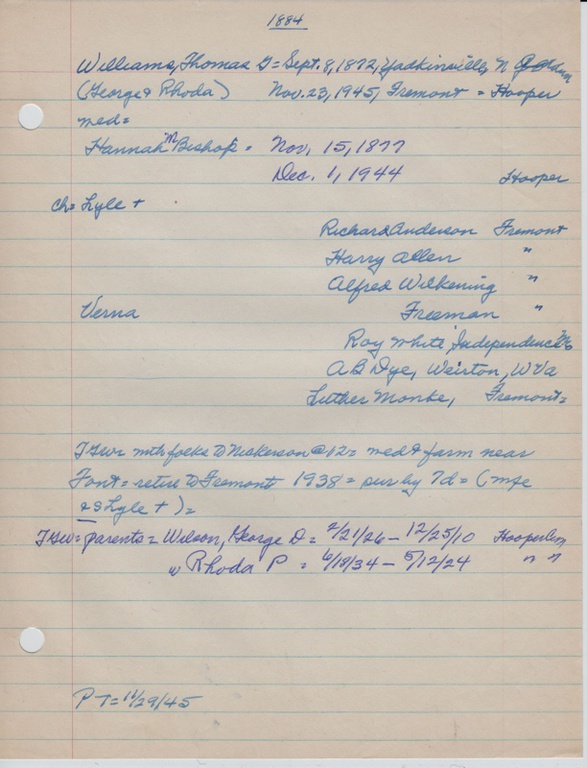 1884
Williams, Thomas G = Sept. 8, 1872, Yadkinville, N
(George & Rhoda) Nov. 23, 1945, Fremont = Hooper
med =
Hannah M Bishop = Nov, 15, 1877
Dec. 1, 1944 Hooper
Ch = Lyle +
Richard Anderson Fremont
Harry Allen "
Alfred Wilkening "
Verna Freeman "
Roy White, Independence Mo
A B Dye, Weirton, W Va
Luther Monke, Fremont =
T G W = with folks to Nickerson @ 12 = med & farm near
Font = retire to Fremont 1938 = sur by 7d = (
& S Lyle +) =
T G W = parents = Wilson, George D = 2/21/26 – 12/25/10 Hooper Cem
w Rhoda P = 6/18/34 – 5/12/24 " "
P T = 11/29/45